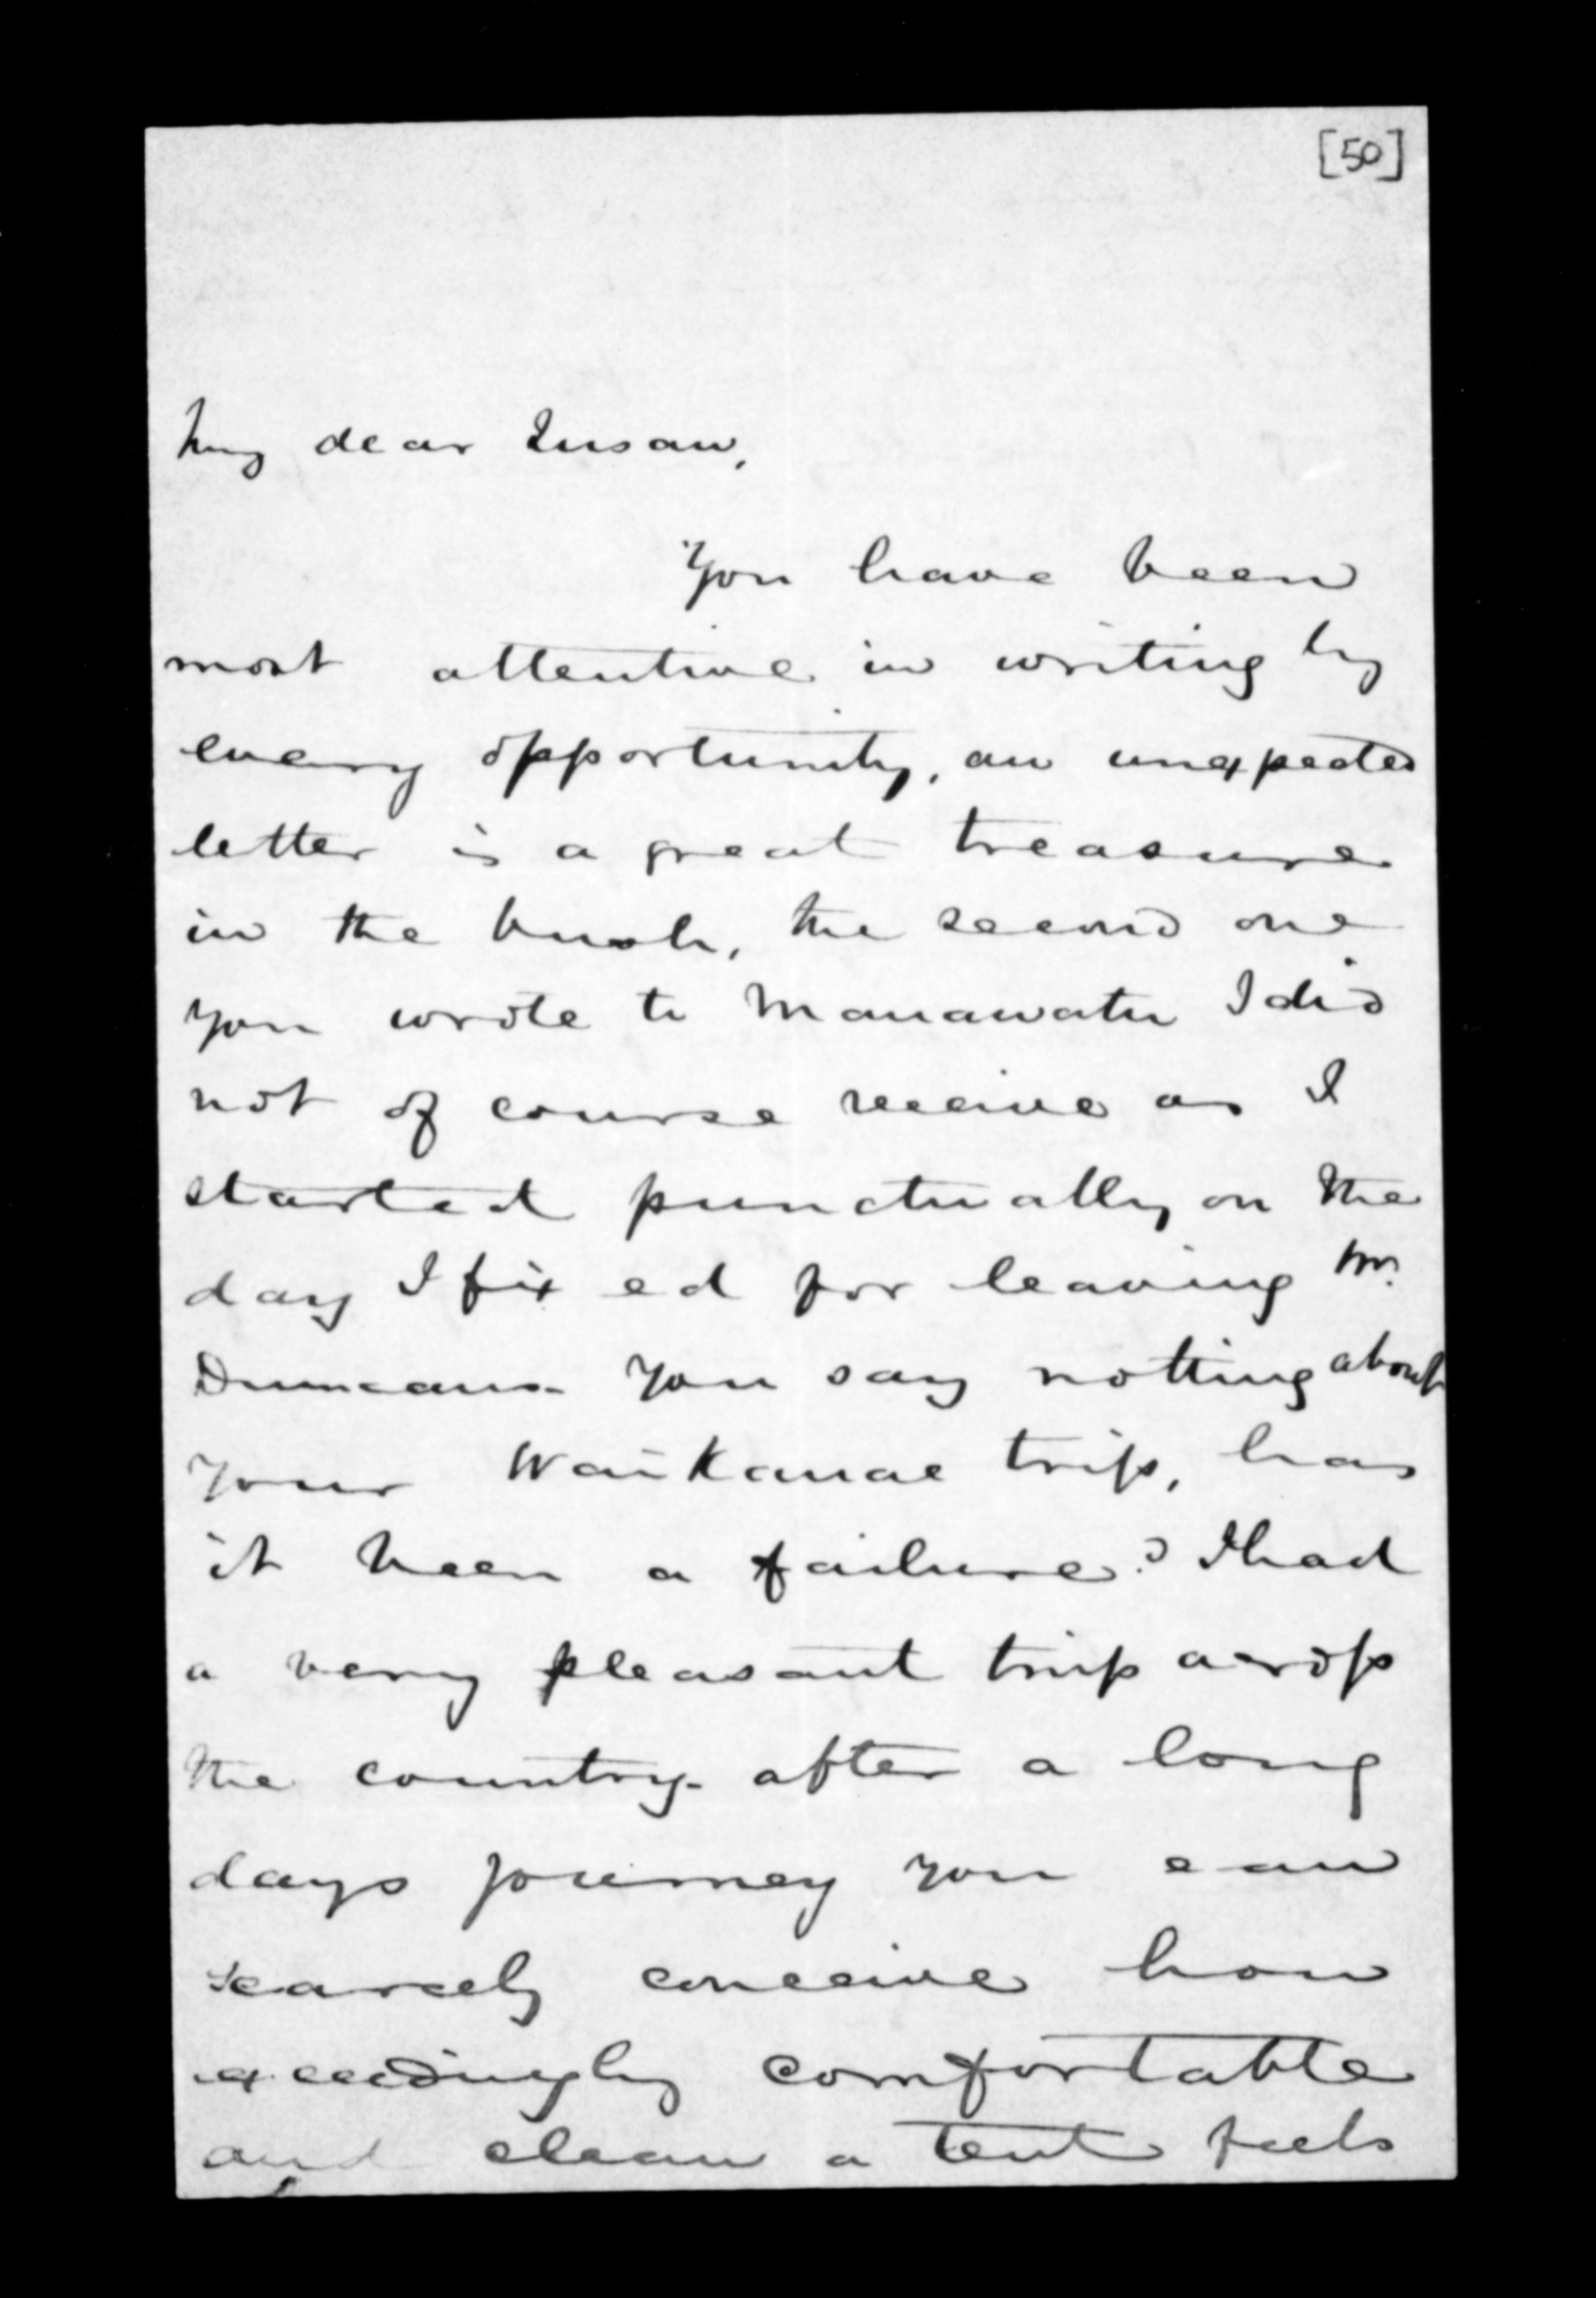 [50]
My dear Susan,
You have been
most attentive in writing by
every opportunity, an unexpected
letter is a great treasure
in the bush, the second one
you wrote to Manawatu I did
not of course receive as I
started punctually on the
day I fixed for leaving Mr.
Duncans - You say nothing about
your Waikanae trip, has
it been a failure? I had
a very pleasant trip across
the country - after a long
days journey you can
scarcely conceive how
exceedingly comfortable
and clean a tent feels